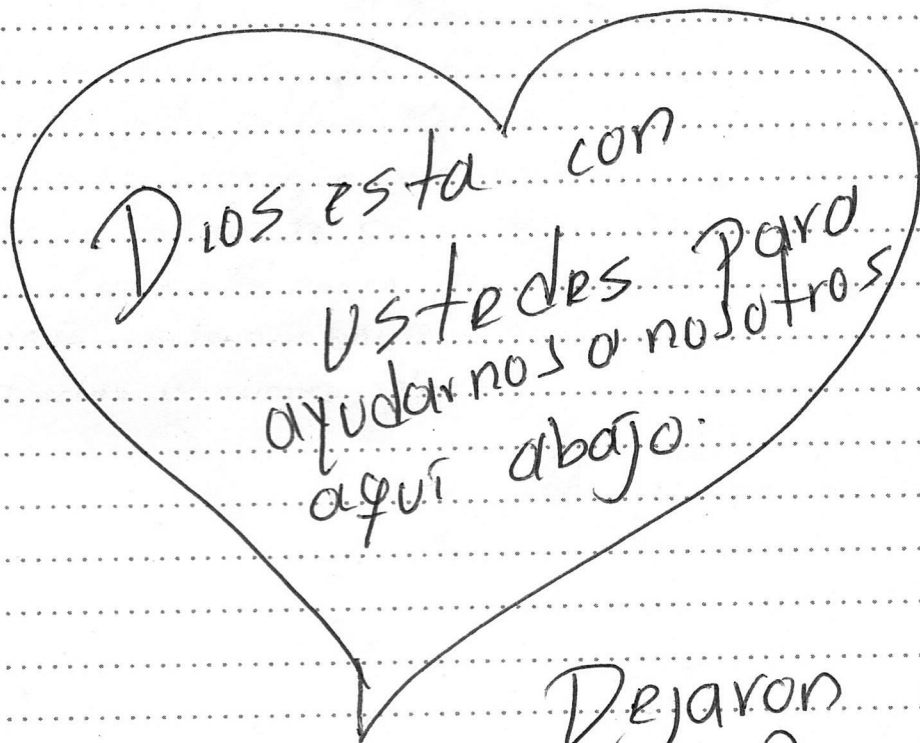 Dios esta con
ustedes para
ayudarnos a nosotros
aquí abajo.
Dejaron